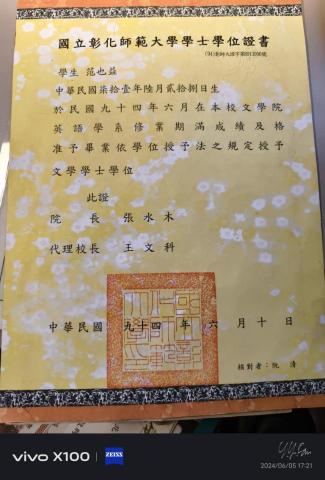 國立彰化師範大學學士學位證書
學生 范也益
中華民國柒拾壹年陸月貳拾捌日生
於民國九十四年六月在本校文學院
英語學系修業期滿成績及格
准予畢業依學位授予法之規定授予
文學學士學位
此證
院長 張水木
代理校長 王文科
中華民國 九十四 年 六 月 十 日
核對者：阮 清
vivo X100 ZEISS
2024/06/05 17:21